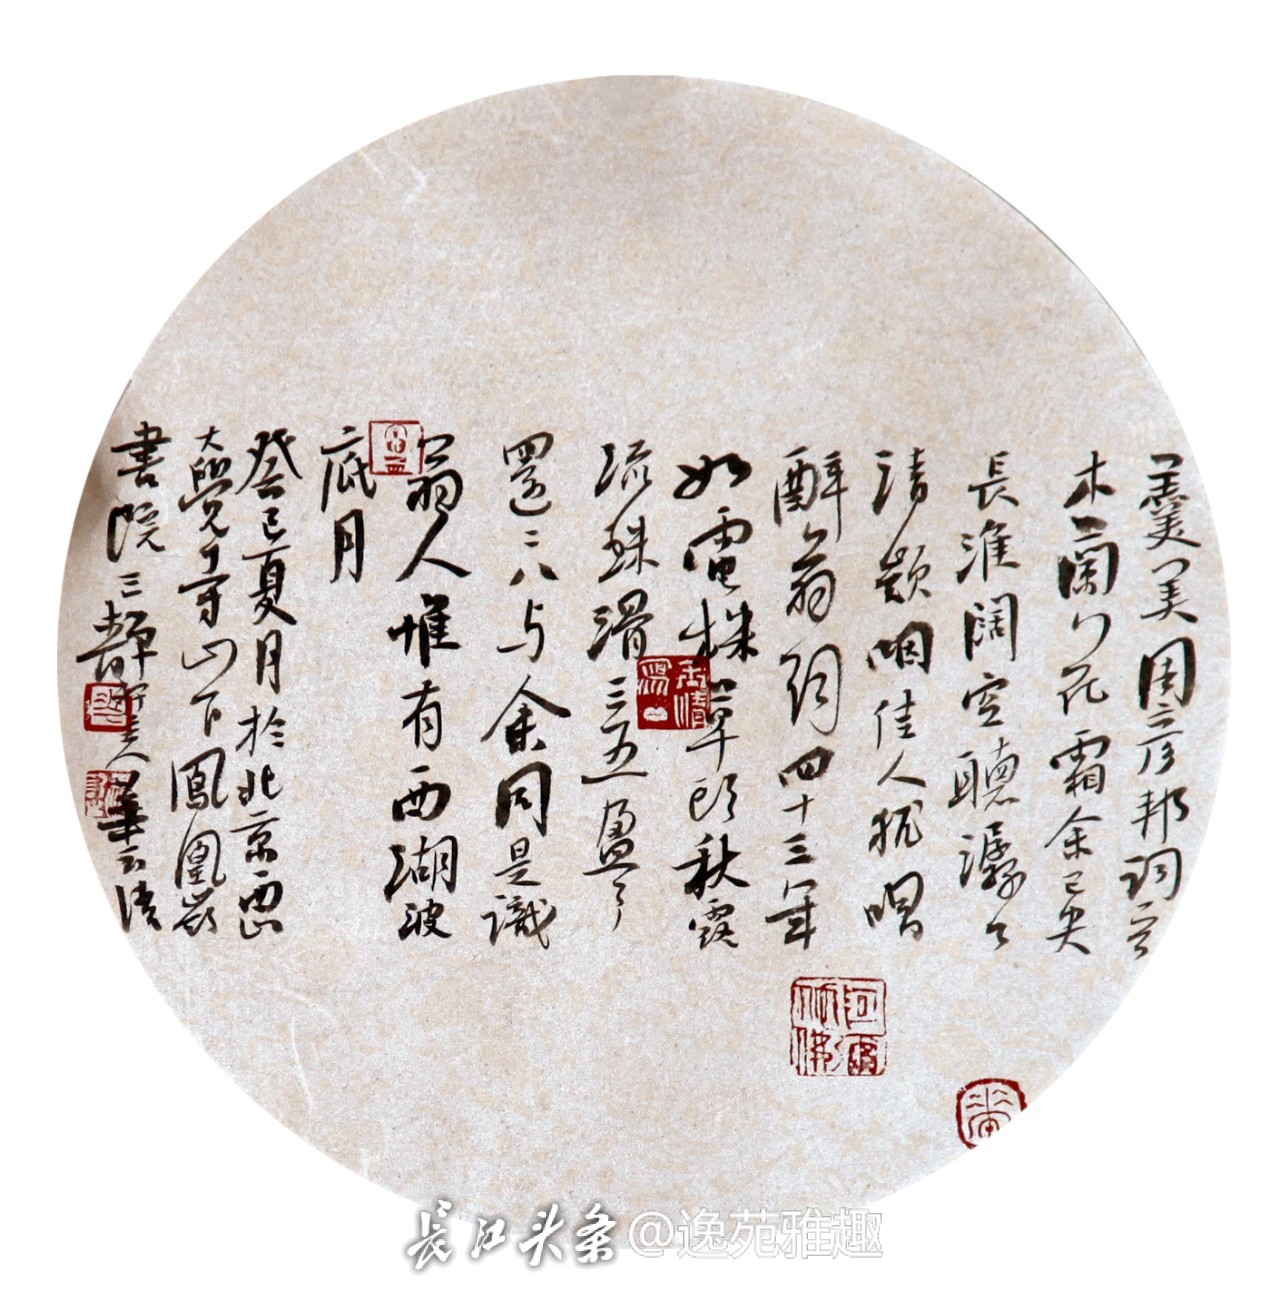 美周彦邦詞
木蘭花霜余已失
長淮闊空聽潺々
清颍咽佳人犹唱
醉翁詞四十三年
如電抹草頭秋露
流珠滑三五盈
還二八与余同是識
翁人惟有西湖波
底月
癸巳夏月於北京西山
大覺寺山下鳳凰嶺
書院三静主人華云
长江头条@逸苑雅趣